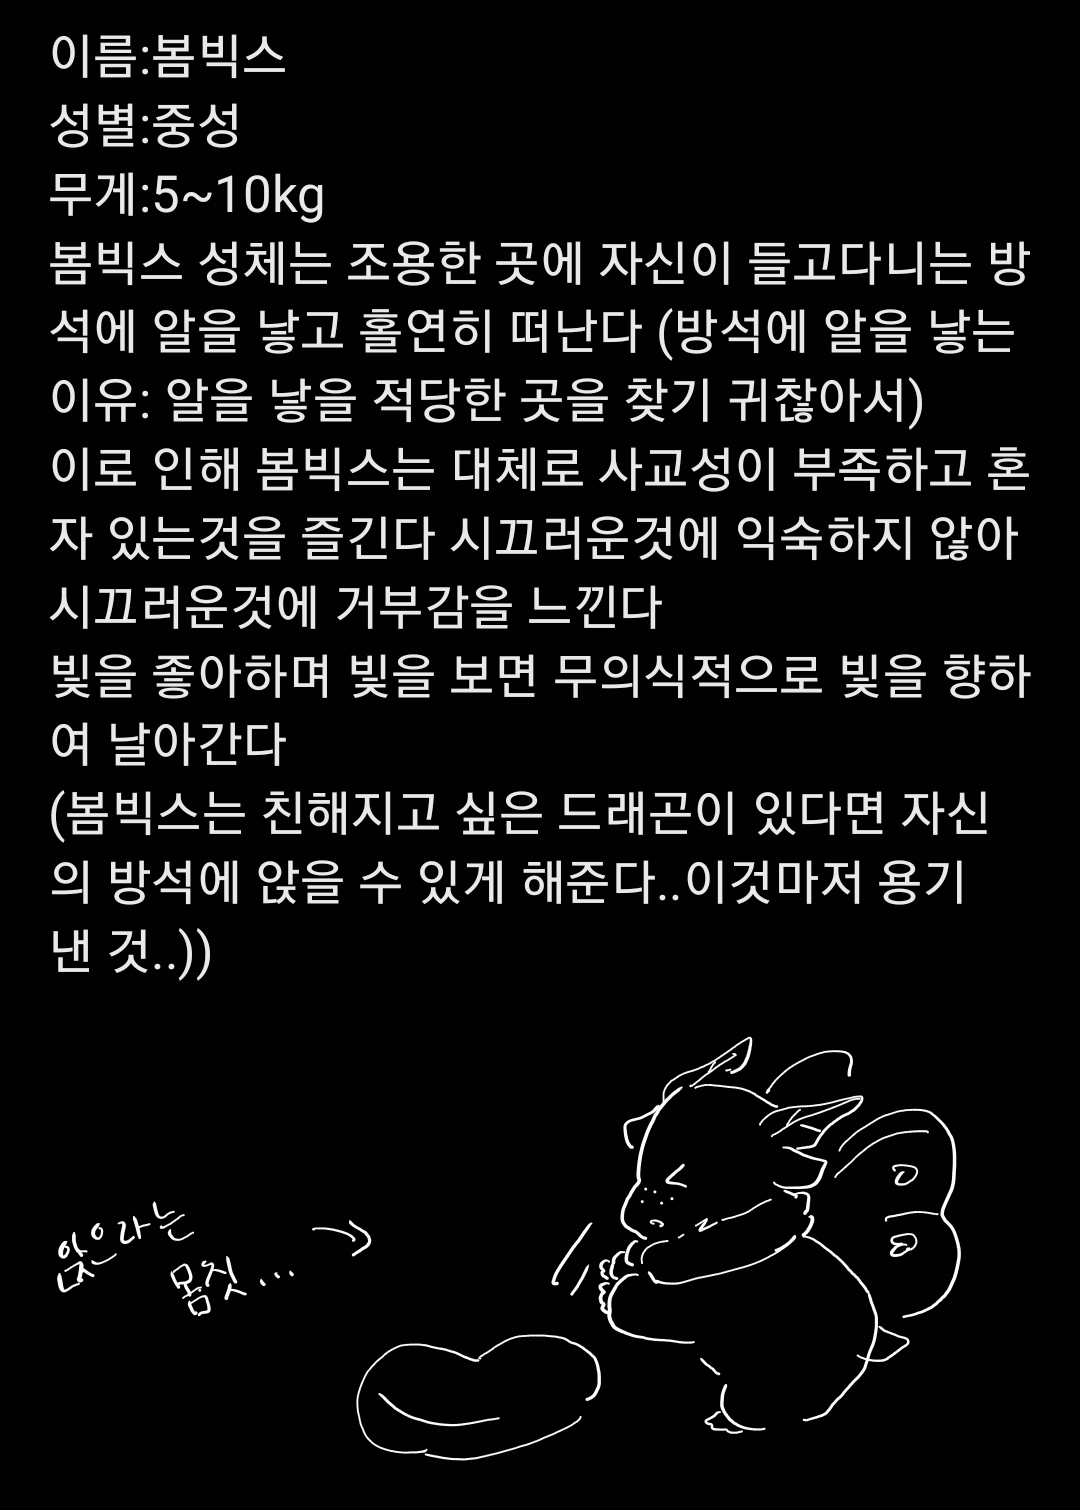 이름:봄빅스
성별:중성
무게:5~10kg
봄빅스 성체는 조용한 곳에 자신이 들고다니는 방
석에 알을 낳고 홀연히 떠난다 (방석에 알을 낳는
이유: 알을 낳을 적당한 곳을 찾기 귀찮아서)
이로 인해 봄빅스는 대체로 사교성이 부족하고 혼
자 있는것을 즐긴다 시끄러운것에 익숙하지 않아
시끄러운것에 거부감을 느낀다
빛을 좋아하며 빛을 보면 무의식적으로 빛을 향하
여 날아간다
(봄빅스는 친해지고 싶은 드래곤이 있다면 자신
의 방석에 앉을 수 있게 해준다..이것마저 용기
낸 것..))
앉으라는
몸짓...